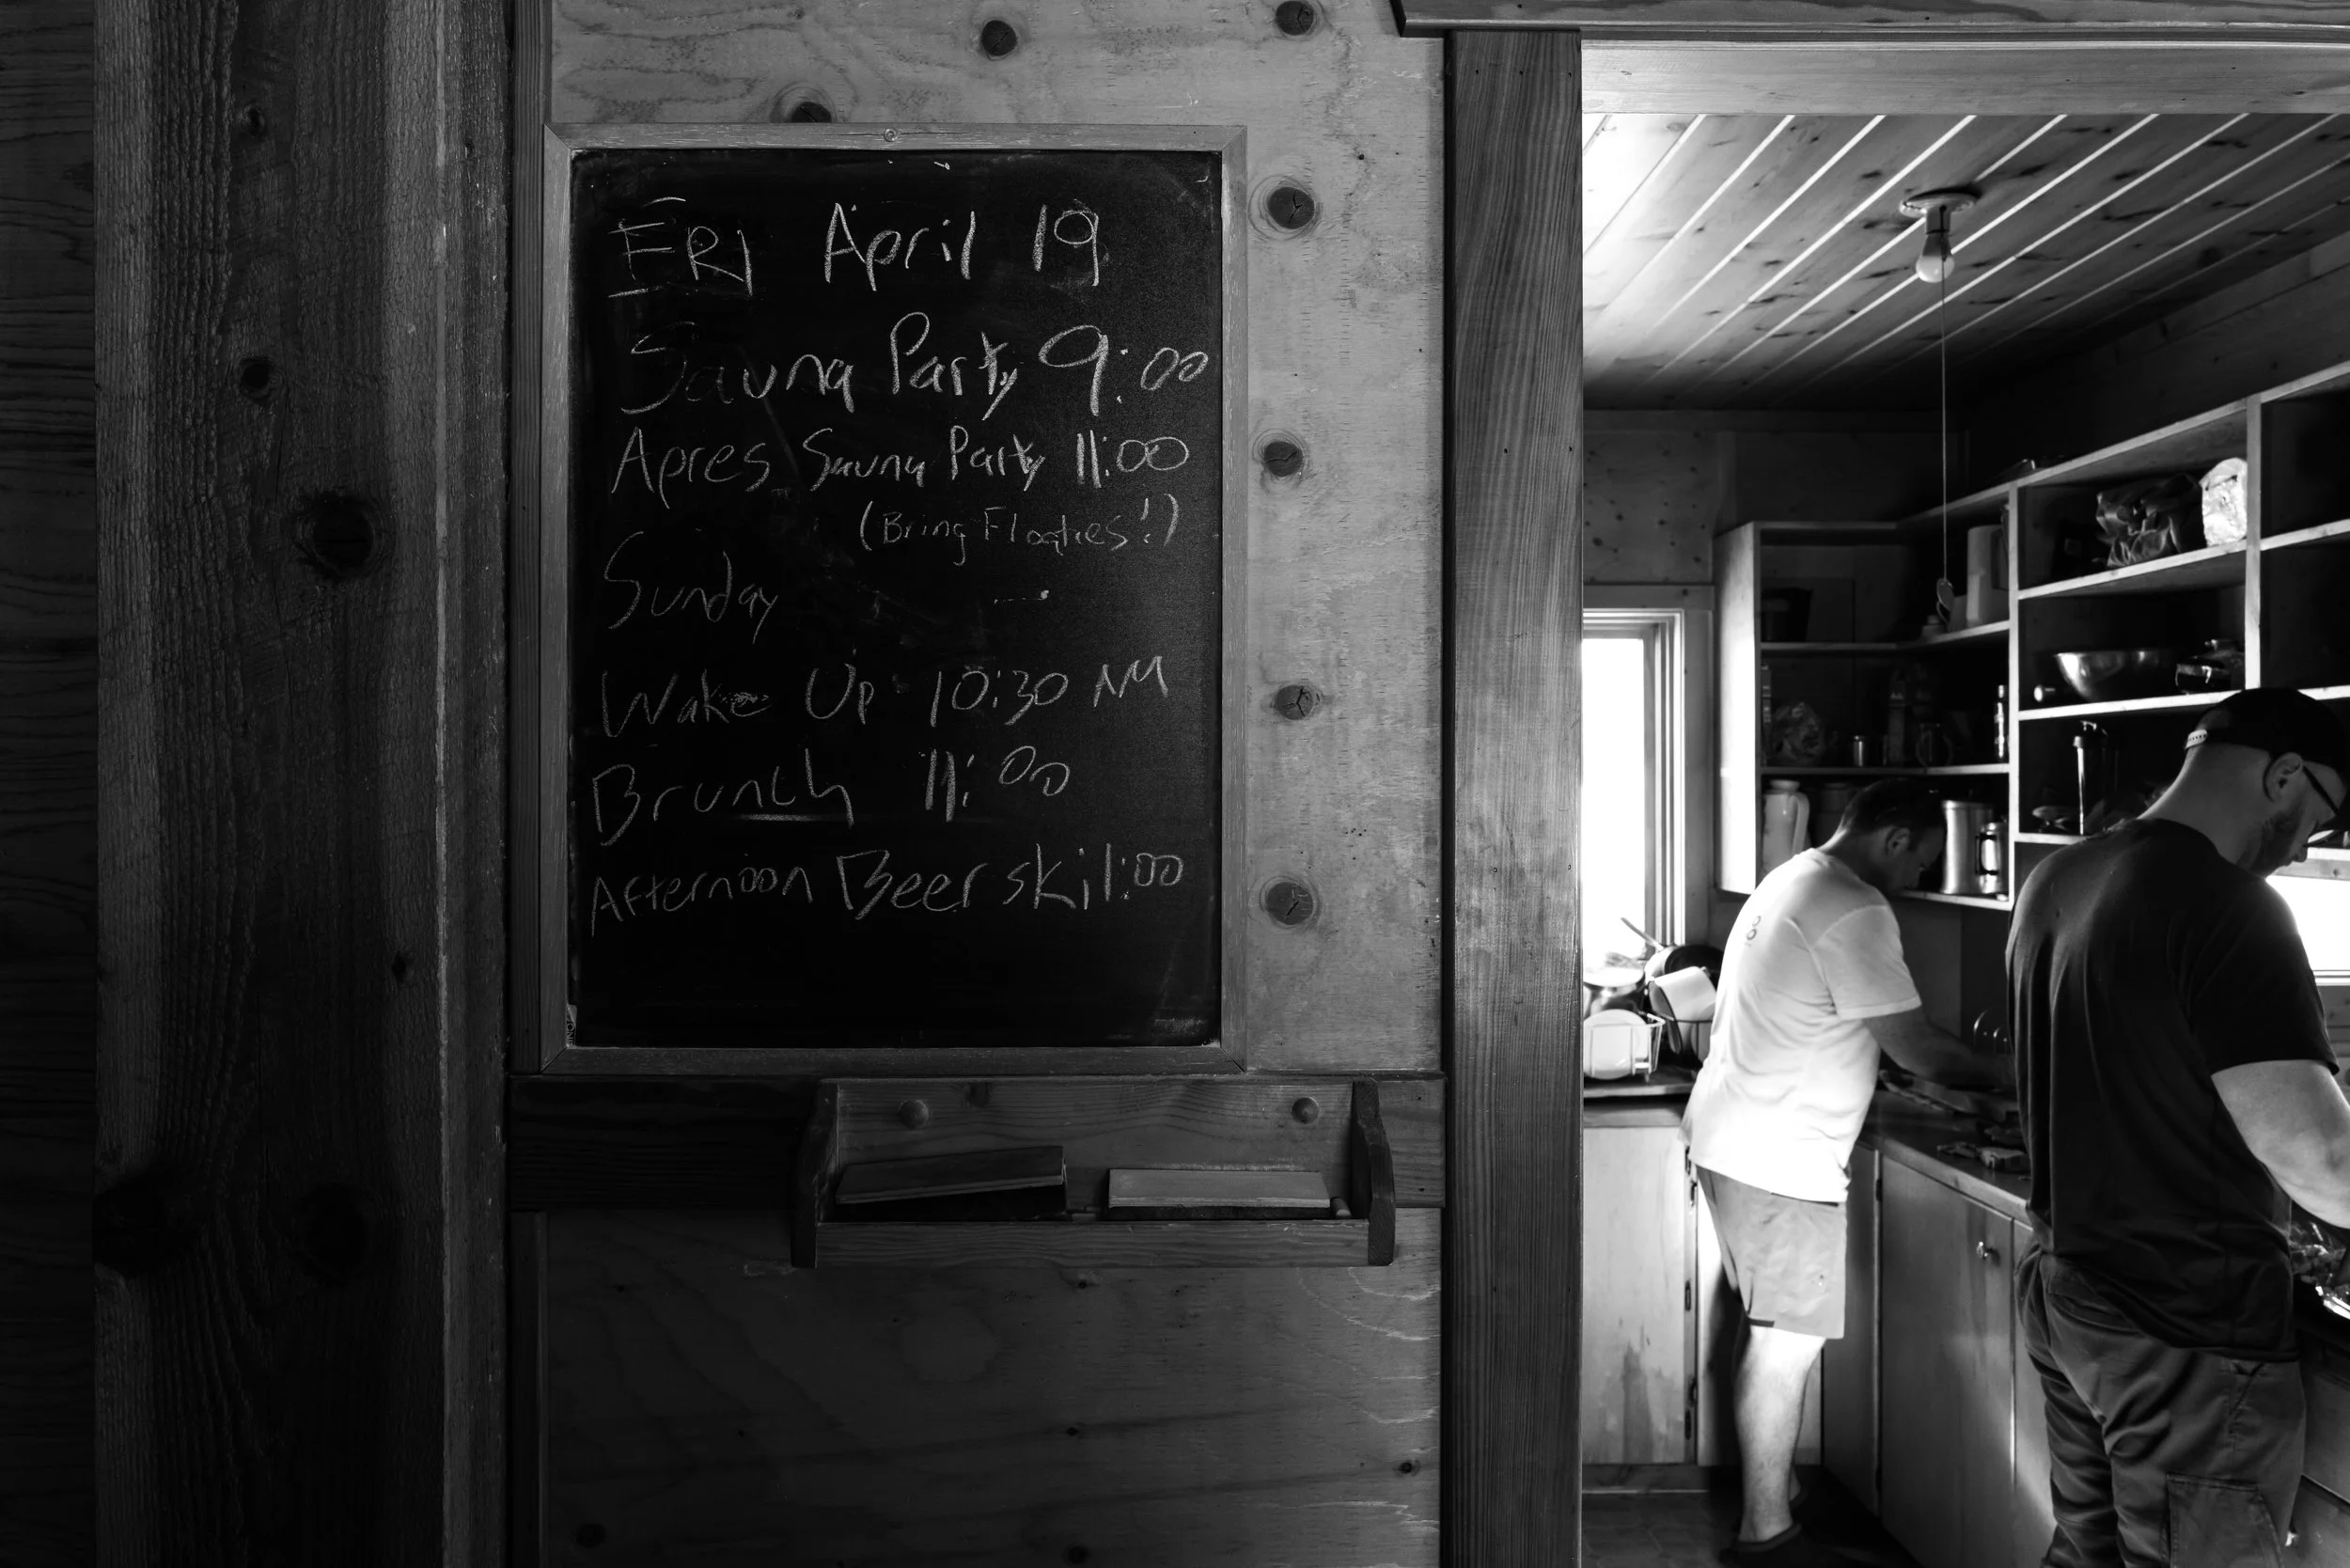 FRI April 19
Sauna Party 9:00
Apres Sauna Party 11:00
(Bring Floaties!)
Sunday
Wake Up 10:30 AM
Brunch 11:00
Afternoon Beer ski 1:00